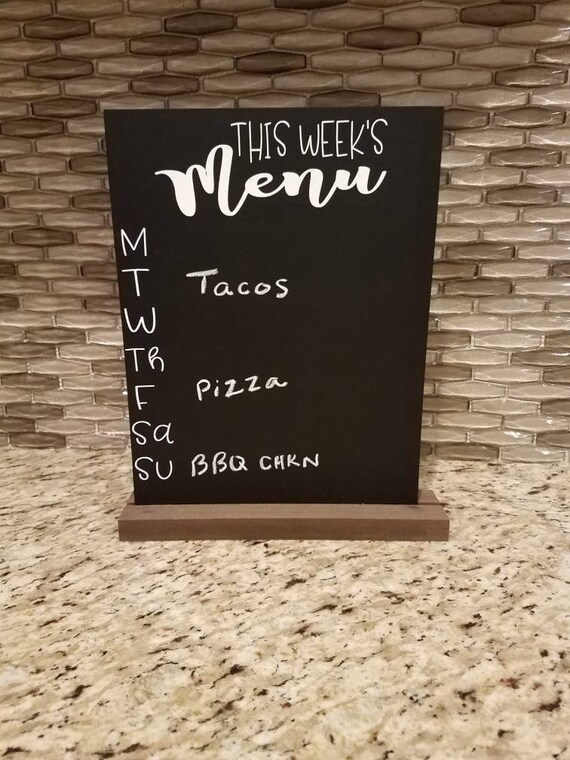 THIS WEEK'S
Menu
M
T Tacos
W
Th
F Pizza
Sa
Su BBQ CHKN